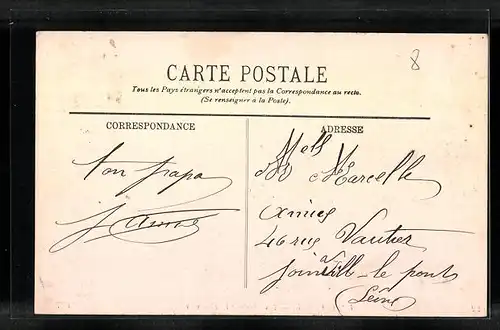 8
CARTE POSTALE
Tous les Pays étrangers n'acceptent pas la Correspondance au recto.
(Se renseigner à la Poste).
CORRESPONDANCE
ton papa
ADRESSE
Mell
Marcelle
46 rue Vautier
Joinville-le pont
(Seine)